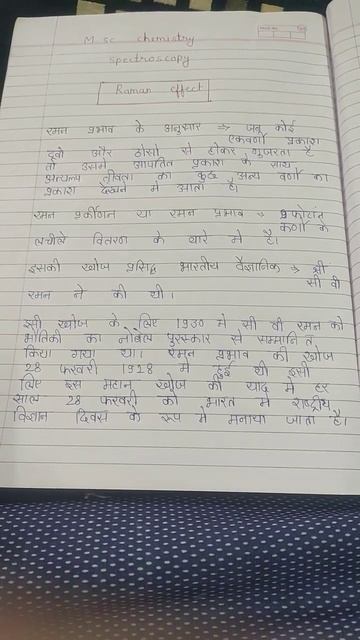 M.sc chemistry
spectroscopy
Raman effect
रमन प्रभाव के अनुसार ⇒ जब कोई
एकवर्णी प्रकाश
द्रवों और ठोसों से होकर गुजरता है
तो उसमें आपतित प्रकाश के साथ
अत्यल्प तीव्रता का कुछ अन्य वर्णों का
प्रकाश देखने में आता है।
रमन प्रकीर्णन या रमन प्रभाव → फोटोन
कणों के
लचीले वितरण के बारे में है।
इसकी खोज प्रसिद्ध भारतीय वैज्ञानिक → श्री
सी वी
रमन ने की थी।
इसी खोज के लिए 1930 में सी वी रमन को
भौतिकी का नोबेल पुरस्कार से सम्मानित
किया गया था। रमन प्रभाव की खोज
28 फरवरी 1928 में हुई थी इसी
लिए इस महान खोज की याद में हर
साल 28 फरवरी को भारत में राष्ट्रीय
विज्ञान दिवस के रूप में मनाया जाता है।